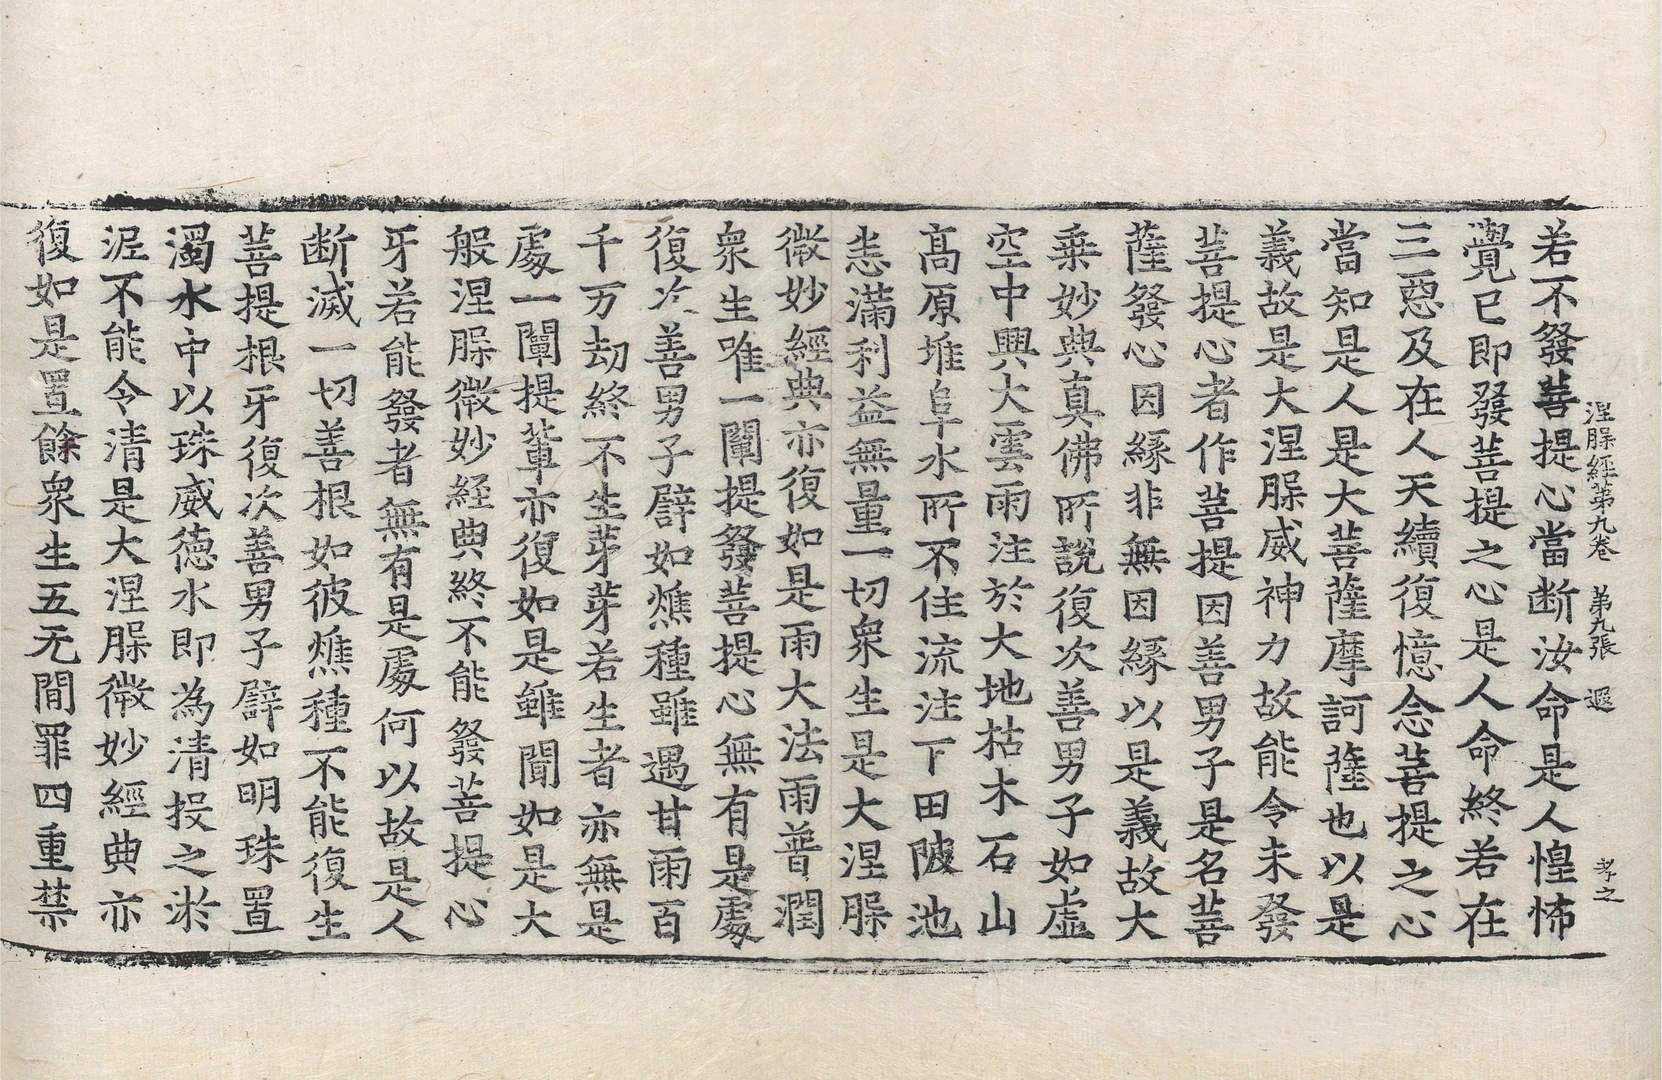 涅槃経苐九卷　苐九張　遐　孝之
若不發菩提心當断汝命是人惶怖
覺已即發菩提之心是人命終若在
三惡及在人天續復憶念菩提之心
當知是人是大菩薩摩訶薩也以是
義故是大涅槃威神力故能令未發
菩提心者作菩提因善男子是名菩
薩發心因緣非無因緣以是義故大
乗妙典真佛所說復次善男子如虛
空中興大雲雨注於大地枯木石山
髙原堆阜水所不住流注下田陂池
悉滿利益無量一切衆生是大涅槃
微妙經典亦復如是雨大法雨普潤
衆生唯一闡提發菩提心無有是處
復次善男子譬如燋種雖遇甘雨百
千万劫終不生芽芽若生者亦無是
處一闡提輩亦復如是雖聞如是大
般涅槃微妙経典終不能發菩提心
牙若能發者無有是處何以故是人
断滅一切善根如彼燋種不能復生
菩提根牙復次善男子譬如明珠置
濁水中以珠威德水即為清投之淤
泥不能令清是大涅槃微妙經典亦
復如是置餘衆生五无間罪四重禁